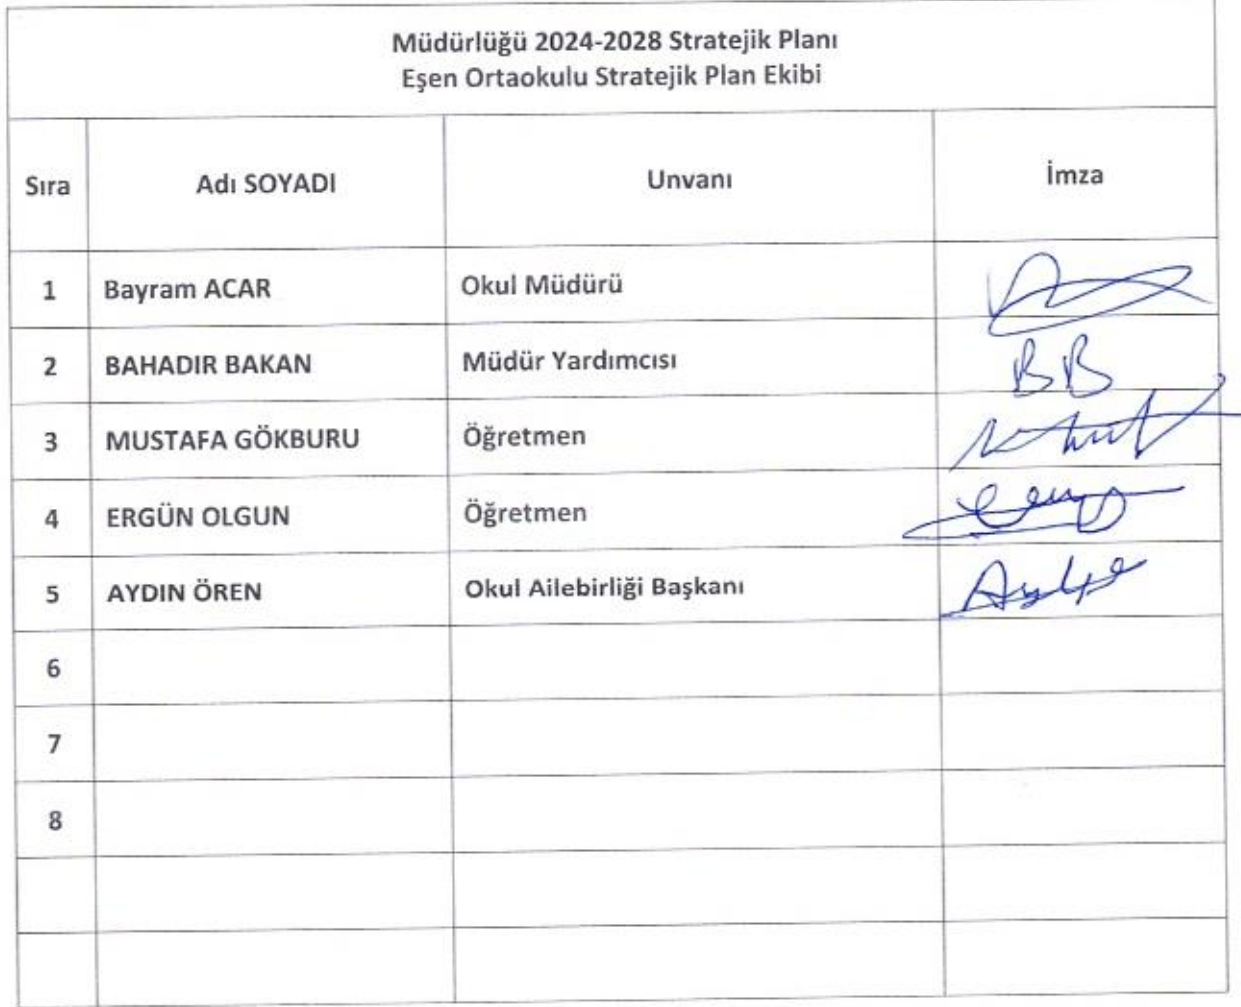 Müdürlüğü 2024-2028 Stratejik Planı
Eşen Ortaokulu Stratejik Plan Ekibi
Sıra Adı SOYADI Unvanı İmza
1 Bayram ACAR Okul Müdürü
2 BAHADIR BAKAN Müdür Yardımcısı BB
3 MUSTAFA GÖKBURU Öğretmen
4 ERGÜN OLGUN Öğretmen
5 AYDIN ÖREN Okul Ailebirliği Başkanı
6
7
8